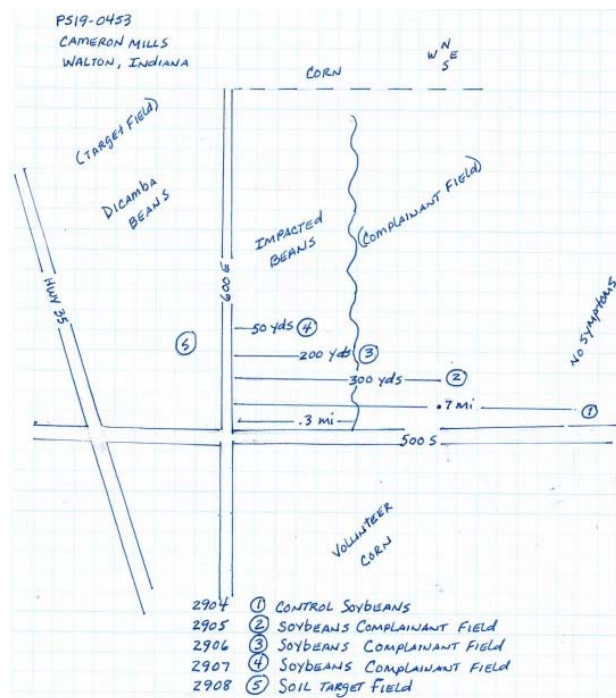 PS19-0453
CAMERON MILLS
WALTON, INDIANA
N
W E
S
CORN
(TARGET FIELD)
DICAMBA
BEANS
IMPACTED
BEANS
(COMPLAINANT FIELD)
600 E
HWY 35
NO SYMPTOMS
50 yds ④
⑤
200 yds ③
300 yds ②
.7 mi ①
.3 mi
500 S
VOLUNTEER
CORN
2904 ① CONTROL SOYBEANS
2905 ② SOYBEANS COMPLAINANT FIELD
2906 ③ SOYBEANS COMPLAINANT FIELD
2907 ④ SOYBEANS COMPLAINANT FIELD
2908 ⑤ SOIL TARGET FIELD